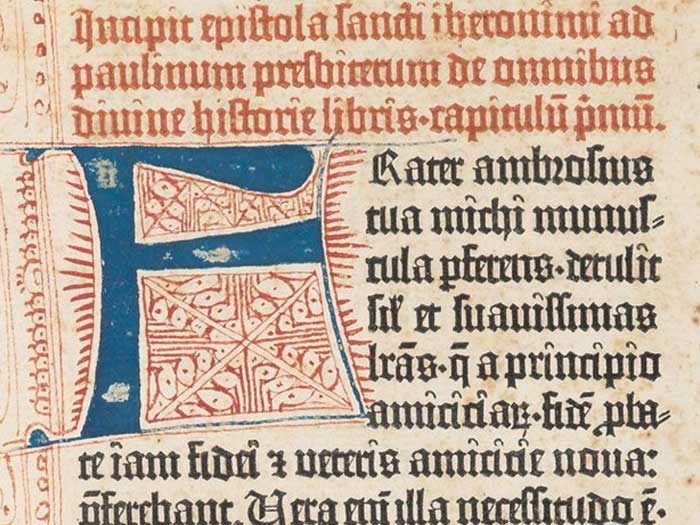 Incipit epistola sancti iheronimi ad
paulinum presbiterum de omnibus
diuine historie libris·capitulū p̄mū.
FRater ambrosius
tua michi munus-
cula ꝑferens·detulit
sil̄ et suauissimas
lrās·q̄ a principio
amiciciaꝝ·fidē ꝓba-
te iam fidei ⁊ veteris amicicie noua:
p̄ferebant. Vera eni̅ illa necessitudo ē·